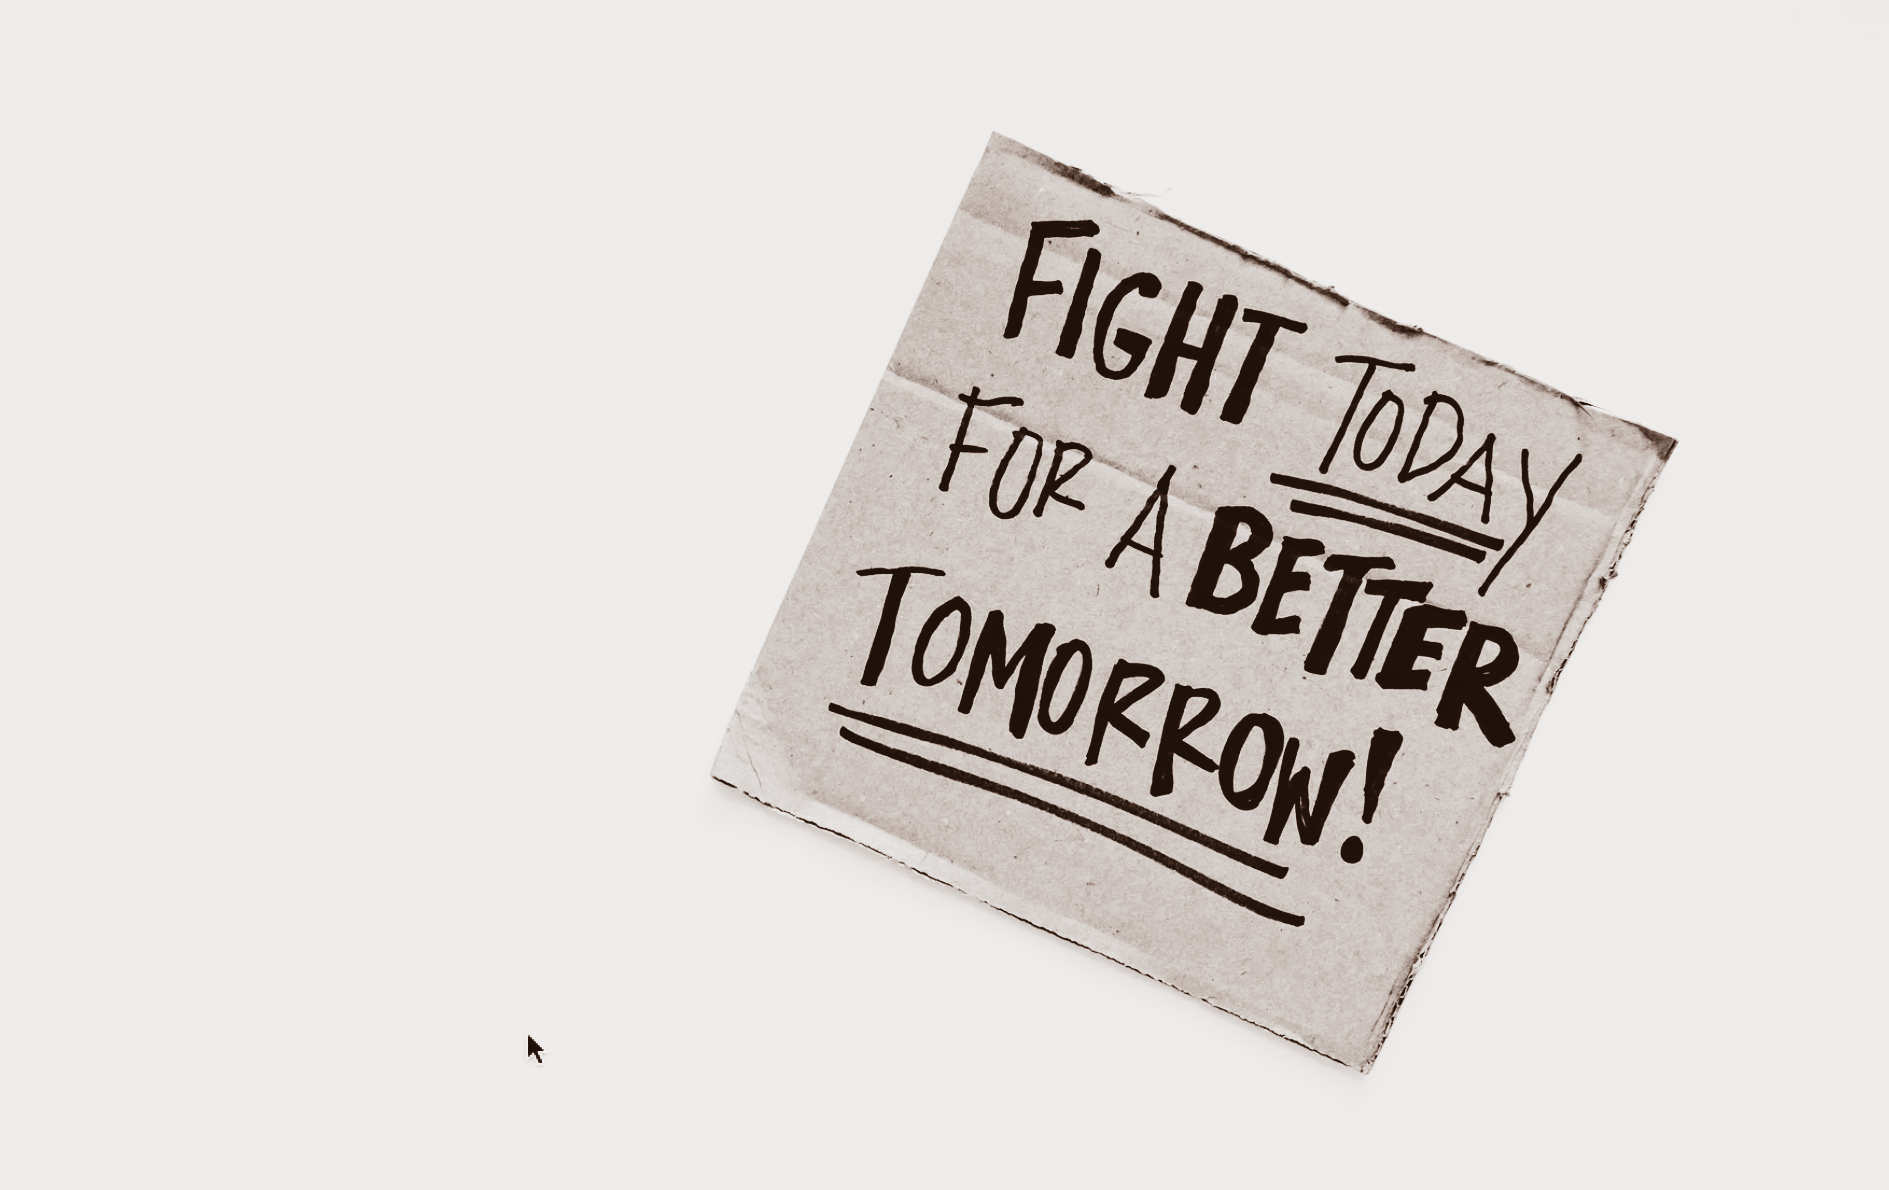 FIGHT TODAY
FOR A BETTER
TOMORROW!